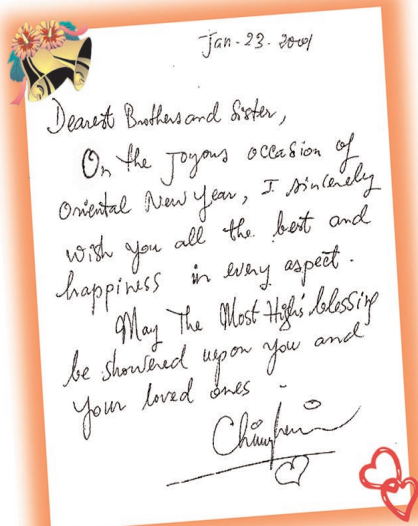 Jan-23-2001
Dearest Brothers and Sister,
On the Joyous occasion of
Oriental New Year, I sincerely
wish you all the best and
happiness in every aspect.
May The Most High's blessing
be showered upon you and
your loved ones.